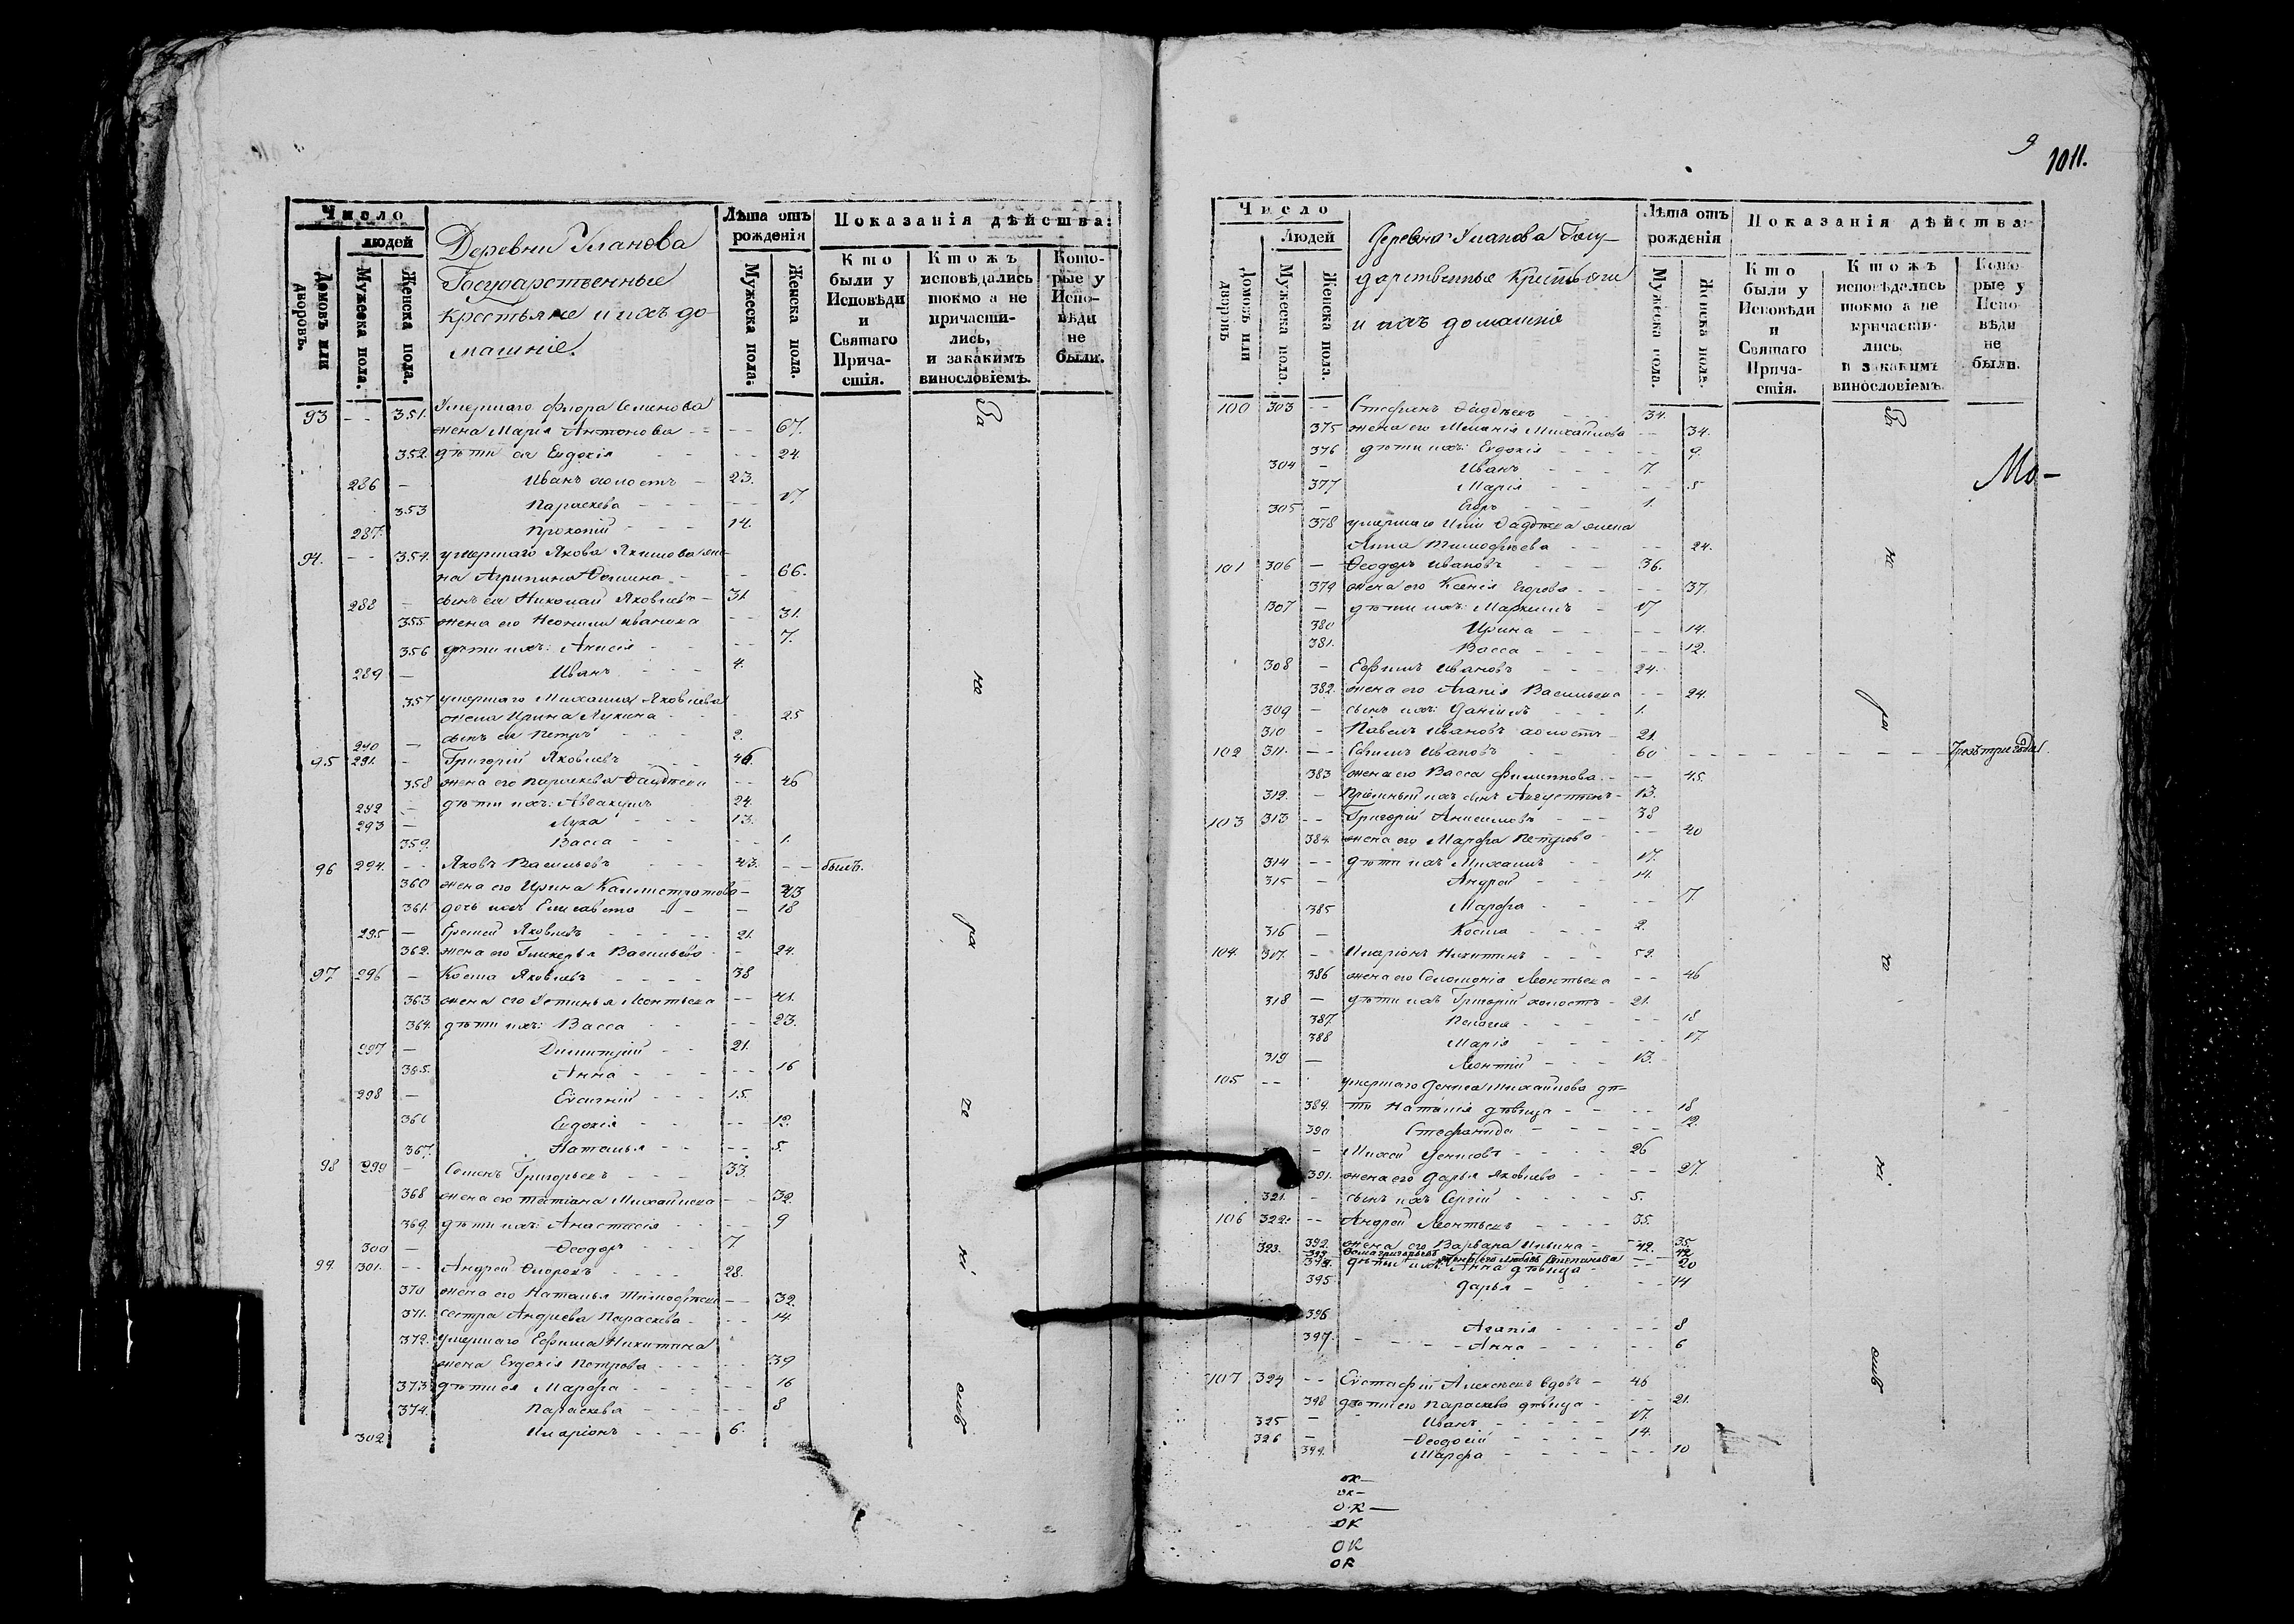 9
1011.
Число
людей
Домовъ или дворовъ.
Мужеска пола.
Женска пола.
Деревни Уланова
Государственные
крестьяне и ихъ до-
машніе.
Лѣта отъ рожденія
Мужеска пола.
Женска пола.
Показанія дѣйства:
Кто были у Исповѣди и Святаго Прича-стія.
Ктожъ исповѣдались токмо а не причасти-лись, и закакимъ винословіемъ.
Кото-рые у Испо-вѣди не были.
93 - - 351. Умершаго Флора Семенова
жена Марія Антонова - - - - 67.
352. дѣти ея Евдокія - - - - 24
286 - Иванъ холостъ - 23.
353 Параскева - - - - 17
287. Прокопій - - - 14.
94. - - 354. умершаго Якова Якимова же-
на Агрипина Фомина - - - 66.
288 - сынъ ея Николай Яковлевъ - 31.
355 жена его Неонила Иванова - - 31.
356 дѣти ихъ: Анисія - - - - 7.
289 - Иванъ - - - 4.
357 умершаго Михаила Яковлева
жена Ирина Лукина - - - 25
290 - сынъ ея Петръ - - - 2.
95 291. - Григорій Яковлевъ - - 46.
358 жена его Параскева - - 46
292 - дѣти ихъ: Аввакумъ - 24.
293 - Лука - - - 13.
359. Васса - - - - 1.
96 294. - - Яковъ Васильевъ - - - 43. - - былъ.
360 жена его Ирина Каллистратова - 43
361. дочь ихъ Елисавета - - - 18
295 - Яковлевъ - - - - 21.
362. жена его Гликерья Васильева - - 24.
97 296 - Косма Яковлевъ - - - - 38
363 жена его Устинья Леонтьева - - 41.
364. дѣти ихъ: Васса - - - - 23.
297 - Димитрій - - 21.
365. Анна - - - - - 16
298 - Евсигній - - - 15.
366 Евдокія - - - - 12.
367. Наталья - - - - 5.
98 299 - Семенъ Григорьевъ - - - - 33.
368 жена его Татіана Михайлова - - 32.
369. дѣти ихъ: Анастасія - - - - 9
300 - Ѳеодоръ - - - 7.
99. 301. - - Андрей - - - - 28.
370 жена его Наталья Тимофѣева - - 32.
371. сестра Андреева Параскева - - - 14.
372. умершаго Ефима Никитина
жена Евдокія Петрова - - - - - 39
373 дѣти ея Марфа - - - - - - 16
374. Параскева - - - - - 8
302 Иларіонъ - - - - 6.
За
не
ра
че
ні
емъ
Число
Людей
Домовъ или дворовъ
Мужеска пола.
Женска пола.
Деревни Уланова Госу-
дарственные Крестьяне
и ихъ домашніе
Лѣта отъ рожденія
Мужеска пола.
Женска пола.
Показанія дѣйства:
Кто были у Исповѣди и Святаго Прича-стія.
Ктожъ исповѣдались токмо а не причасти-лись, и закакимъ винословіемъ.
Кото-рые у Испо-вѣди не были.
100 303 - - Стефанъ - - - 34.
375 жена его Меланія Михайлова - - 34.
376 дѣти ихъ: Евдокія - - - - - 9.
304 - Иванъ - - - 7.
377 Марія - - - - - 5
305 - Егоръ - - - - 1.
378 умершаго жена
Анна Тимофѣева - - - - 24.
101 306 - Ѳеодоръ Ивановъ - - - 36.
379 жена его Ксенія Егорова - - - - 37.
307 - дѣти ихъ: - 17
380 Ирина - - - - 14.
381. Васса - - - - - 12.
308 - Ефимъ Ивановъ - - - - 24.
382. жена его Агапія Васильева - - 24.
309 - сынъ ихъ: Даніилъ - - - 1.
310 - Павелъ Ивановъ холостъ - 21.
102 311. - - Ефимъ Ивановъ - - - - 60 - - - - - - - - - - Чрезъ три года.
383 жена его Васса Филиппова. - - - 45.
312. - Пріемный ихъ сынъ Августинъ - 13.
103 313 - - Григорій Анисимовъ - - - 38
384. жена его Марфа Петрова - - - 40
314 - - дѣти ихъ Михаилъ - - 17.
315 - Андрей - - - 14.
385 Марфа - - - - 7.
316 - Косма - - - - 2.
104. 317. - Иларіонъ Никитинъ - - - 52.
386 жена его Соломонія Леонтьева - - 46
318 - дѣти ихъ Григорій холостъ - 21.
387. Пелагея - - - - - 18
388 Марія - - - - - 17.
319 - Леонтій - - - 13.
105 - - умершаго Дениса Михайлова дѣ-
389. ти Наталія дѣвица - - - - 18
390 Стефанида - - - - - 12.
- Денисовъ - - - - 26
391. жена его Дарья Яковлева - - - - 27.
321. - сынъ ихъ Сергій - - - - 5.
106 322. - - Андрей Леонтьевъ - - - - 35.
392. жена его Варвара Ильина - - 35.
323. 393. Ѳома Григорьевъ жена его Любовь Степанова 42. 42
394. дѣти ихъ: Анна дѣвица - - - 20
395 Дарья - - - - - 14
396 Агапія - - - - - - 8
397. - - - - Анна - - - - - 6
107 324 - - Евстафій Алексѣевъ вдовъ - 46
398 дѣти его Параскева дѣвица - - - 21.
325 - Иванъ - - - - - 17.
326 - Ѳеодосій - - - - - 14.
399. Марфа - - - - - - - 10
За
не
ра
че
ні
емъ
Мо-
ок-
ок-
О К-
ОК
ОК
ОК